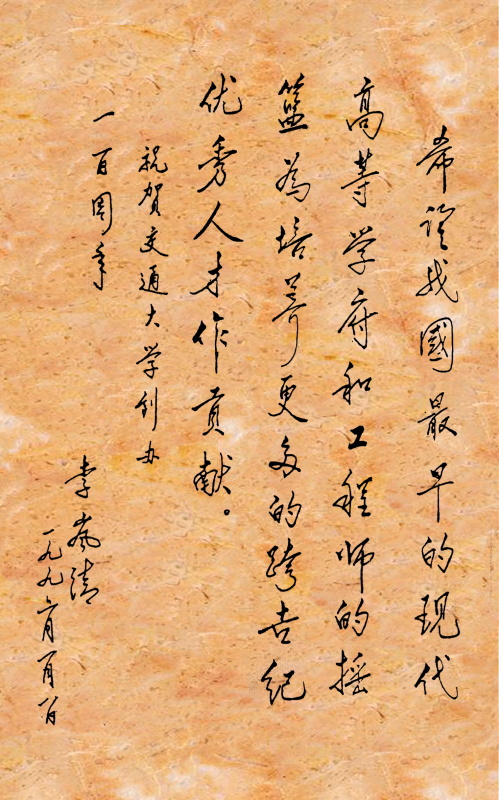 希望我國最早的现代
高等学府和工程师的摇
篮為培养更多的跨世纪
优秀人才作贡献。
祝贺交通大学创办
一百周年
李岚清
一九九六年